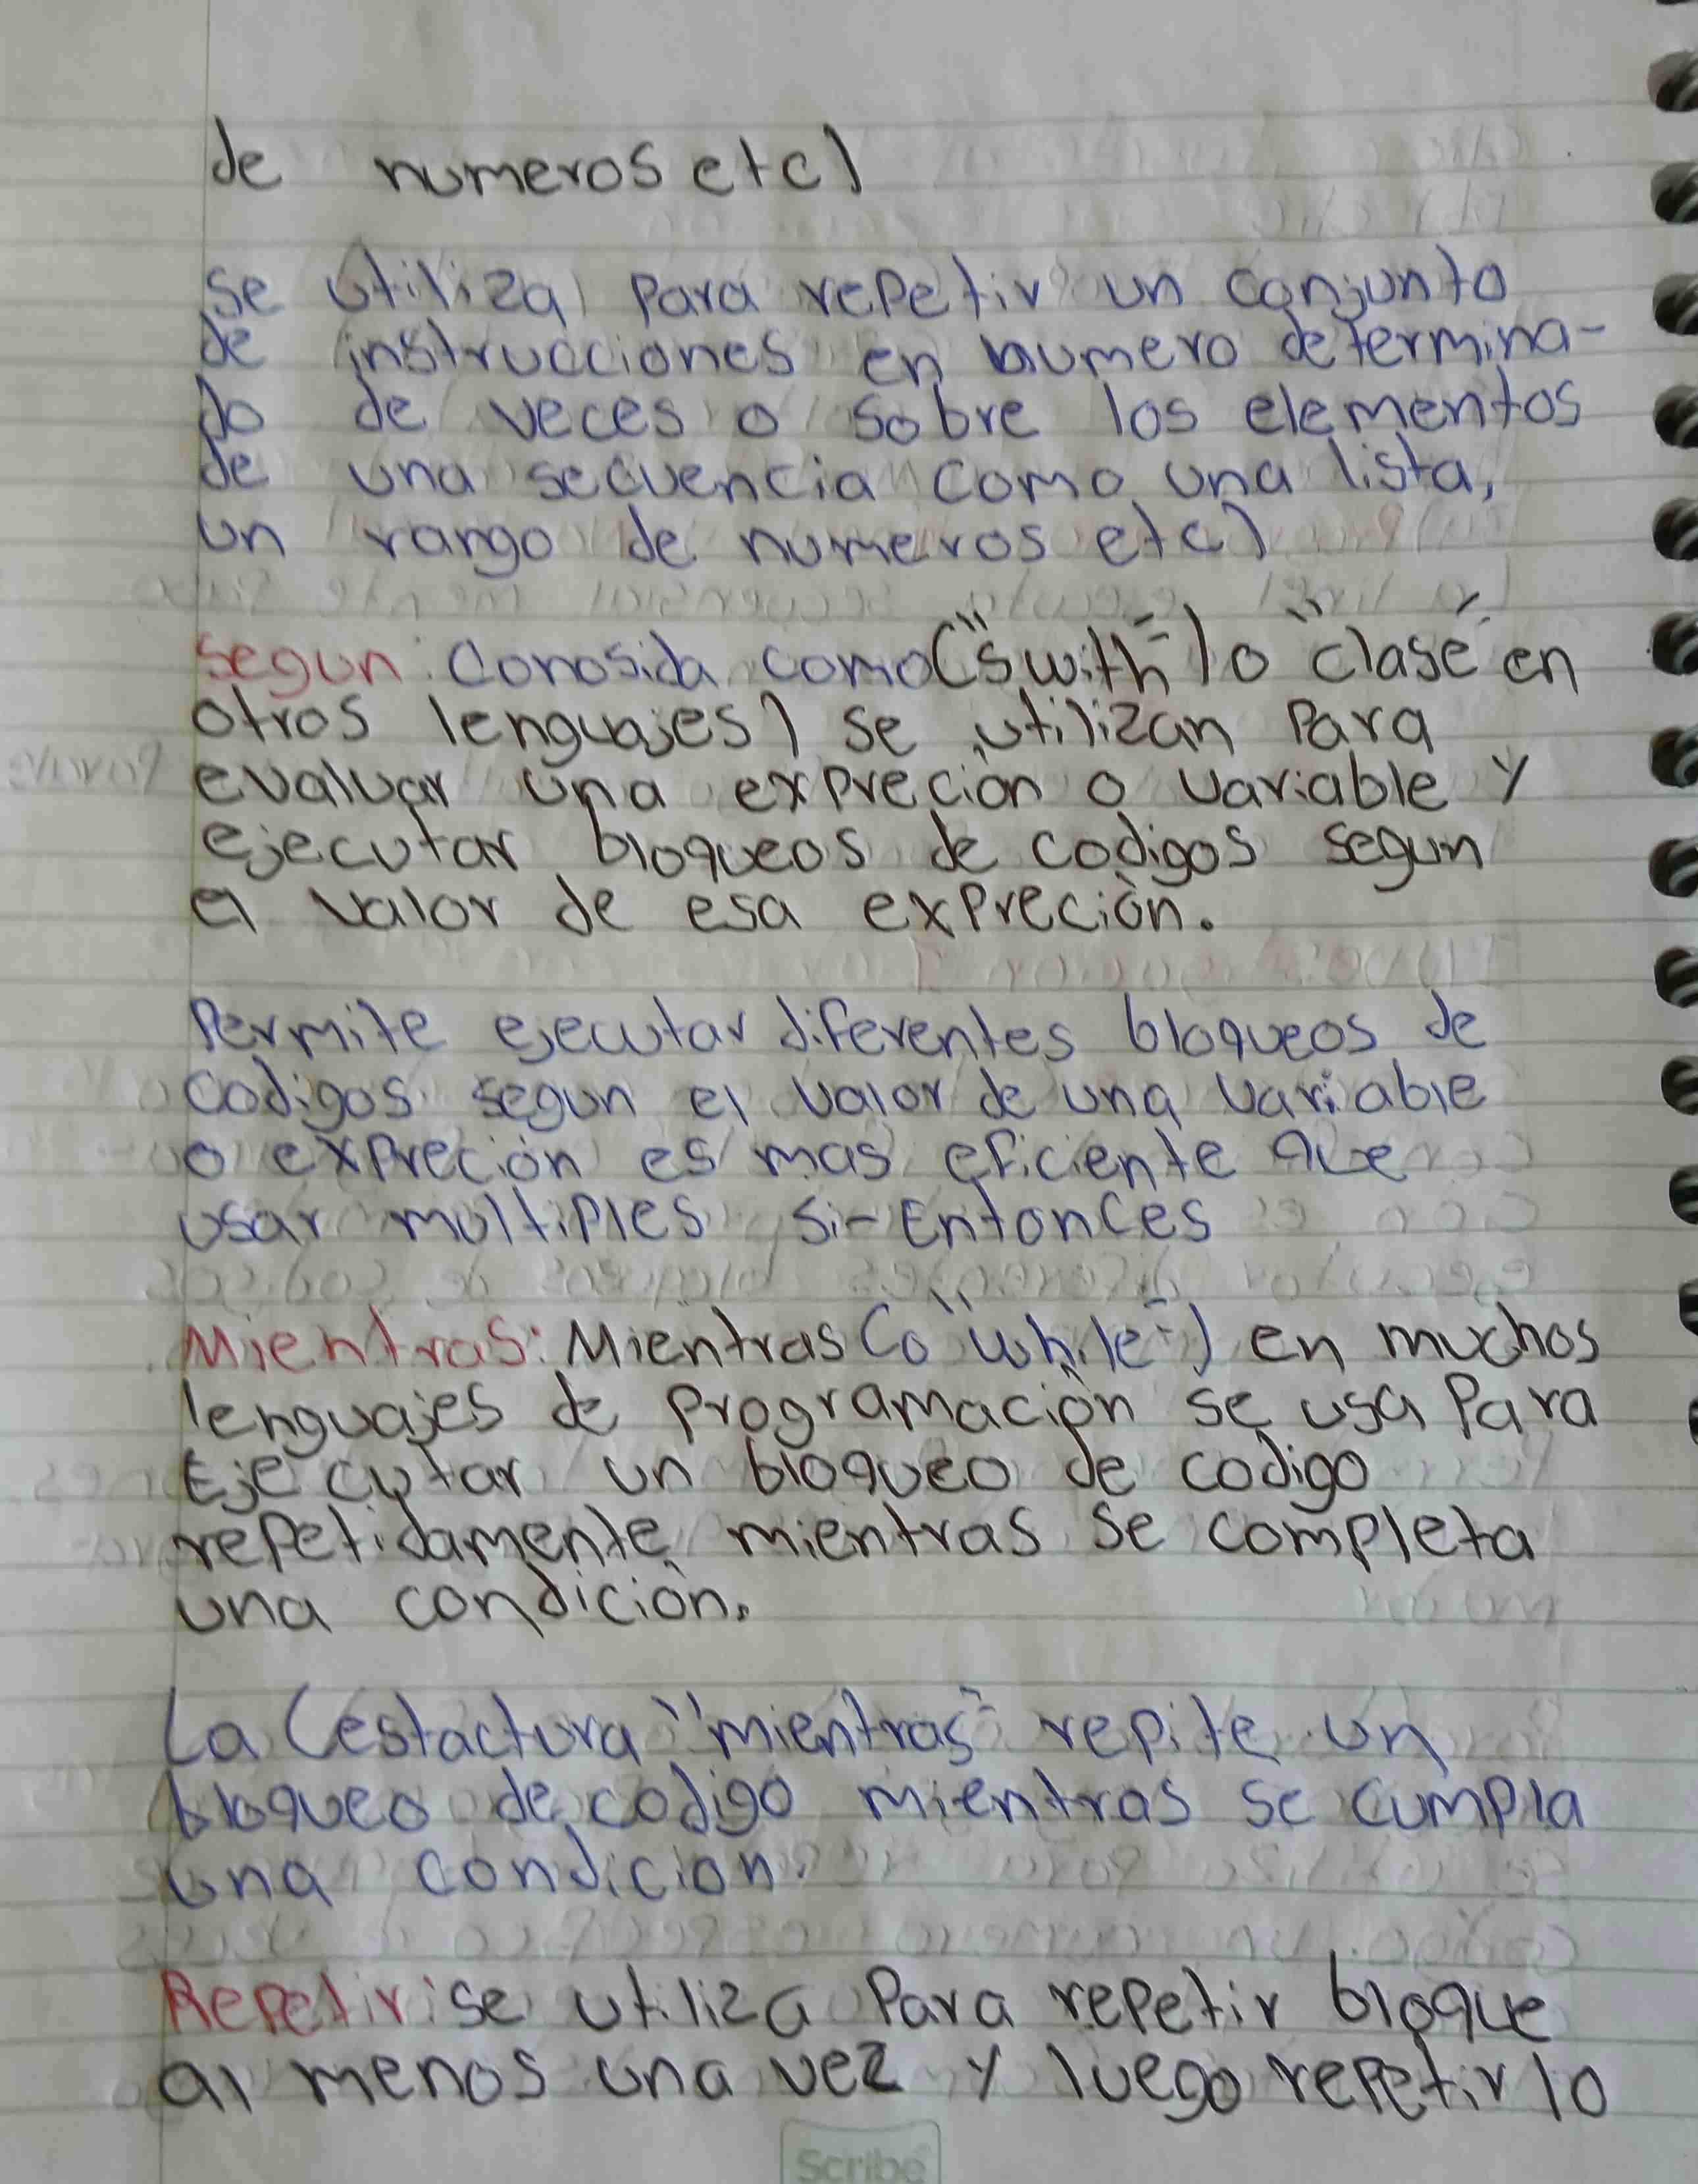 de numeros etc)
se utiliza para repetir un conjunto
de instrucciones en numero determina-
do de veces o sobre los elementos
de una secuencia como una lista,
un rango de numeros etc)
segun: Conosida como ("swith") o "clase" en
otros lenguajes) se utilizan para
evaluar una expreción o variable y
ejecutar bloqueos de codigos segun
el valor de esa expreción.
Permite ejecutar diferentes bloqueos de
codigos segun el valor de una variable
o expreción es mas eficiente que
usar multiples si-Entonces
Mientras: Mientras (o "while") en muchos
lenguajes de programación se usa para
Ejecutar un bloqueo de codigo
repetidamente mientras se completa
una condición.
La (estactura "mientras" repite un
bloqueo de codigo mientras se cumpla
una condicion.
Repetir: se utiliza para repetir bloque
al menos una vez y luego repetirlo
Scribe